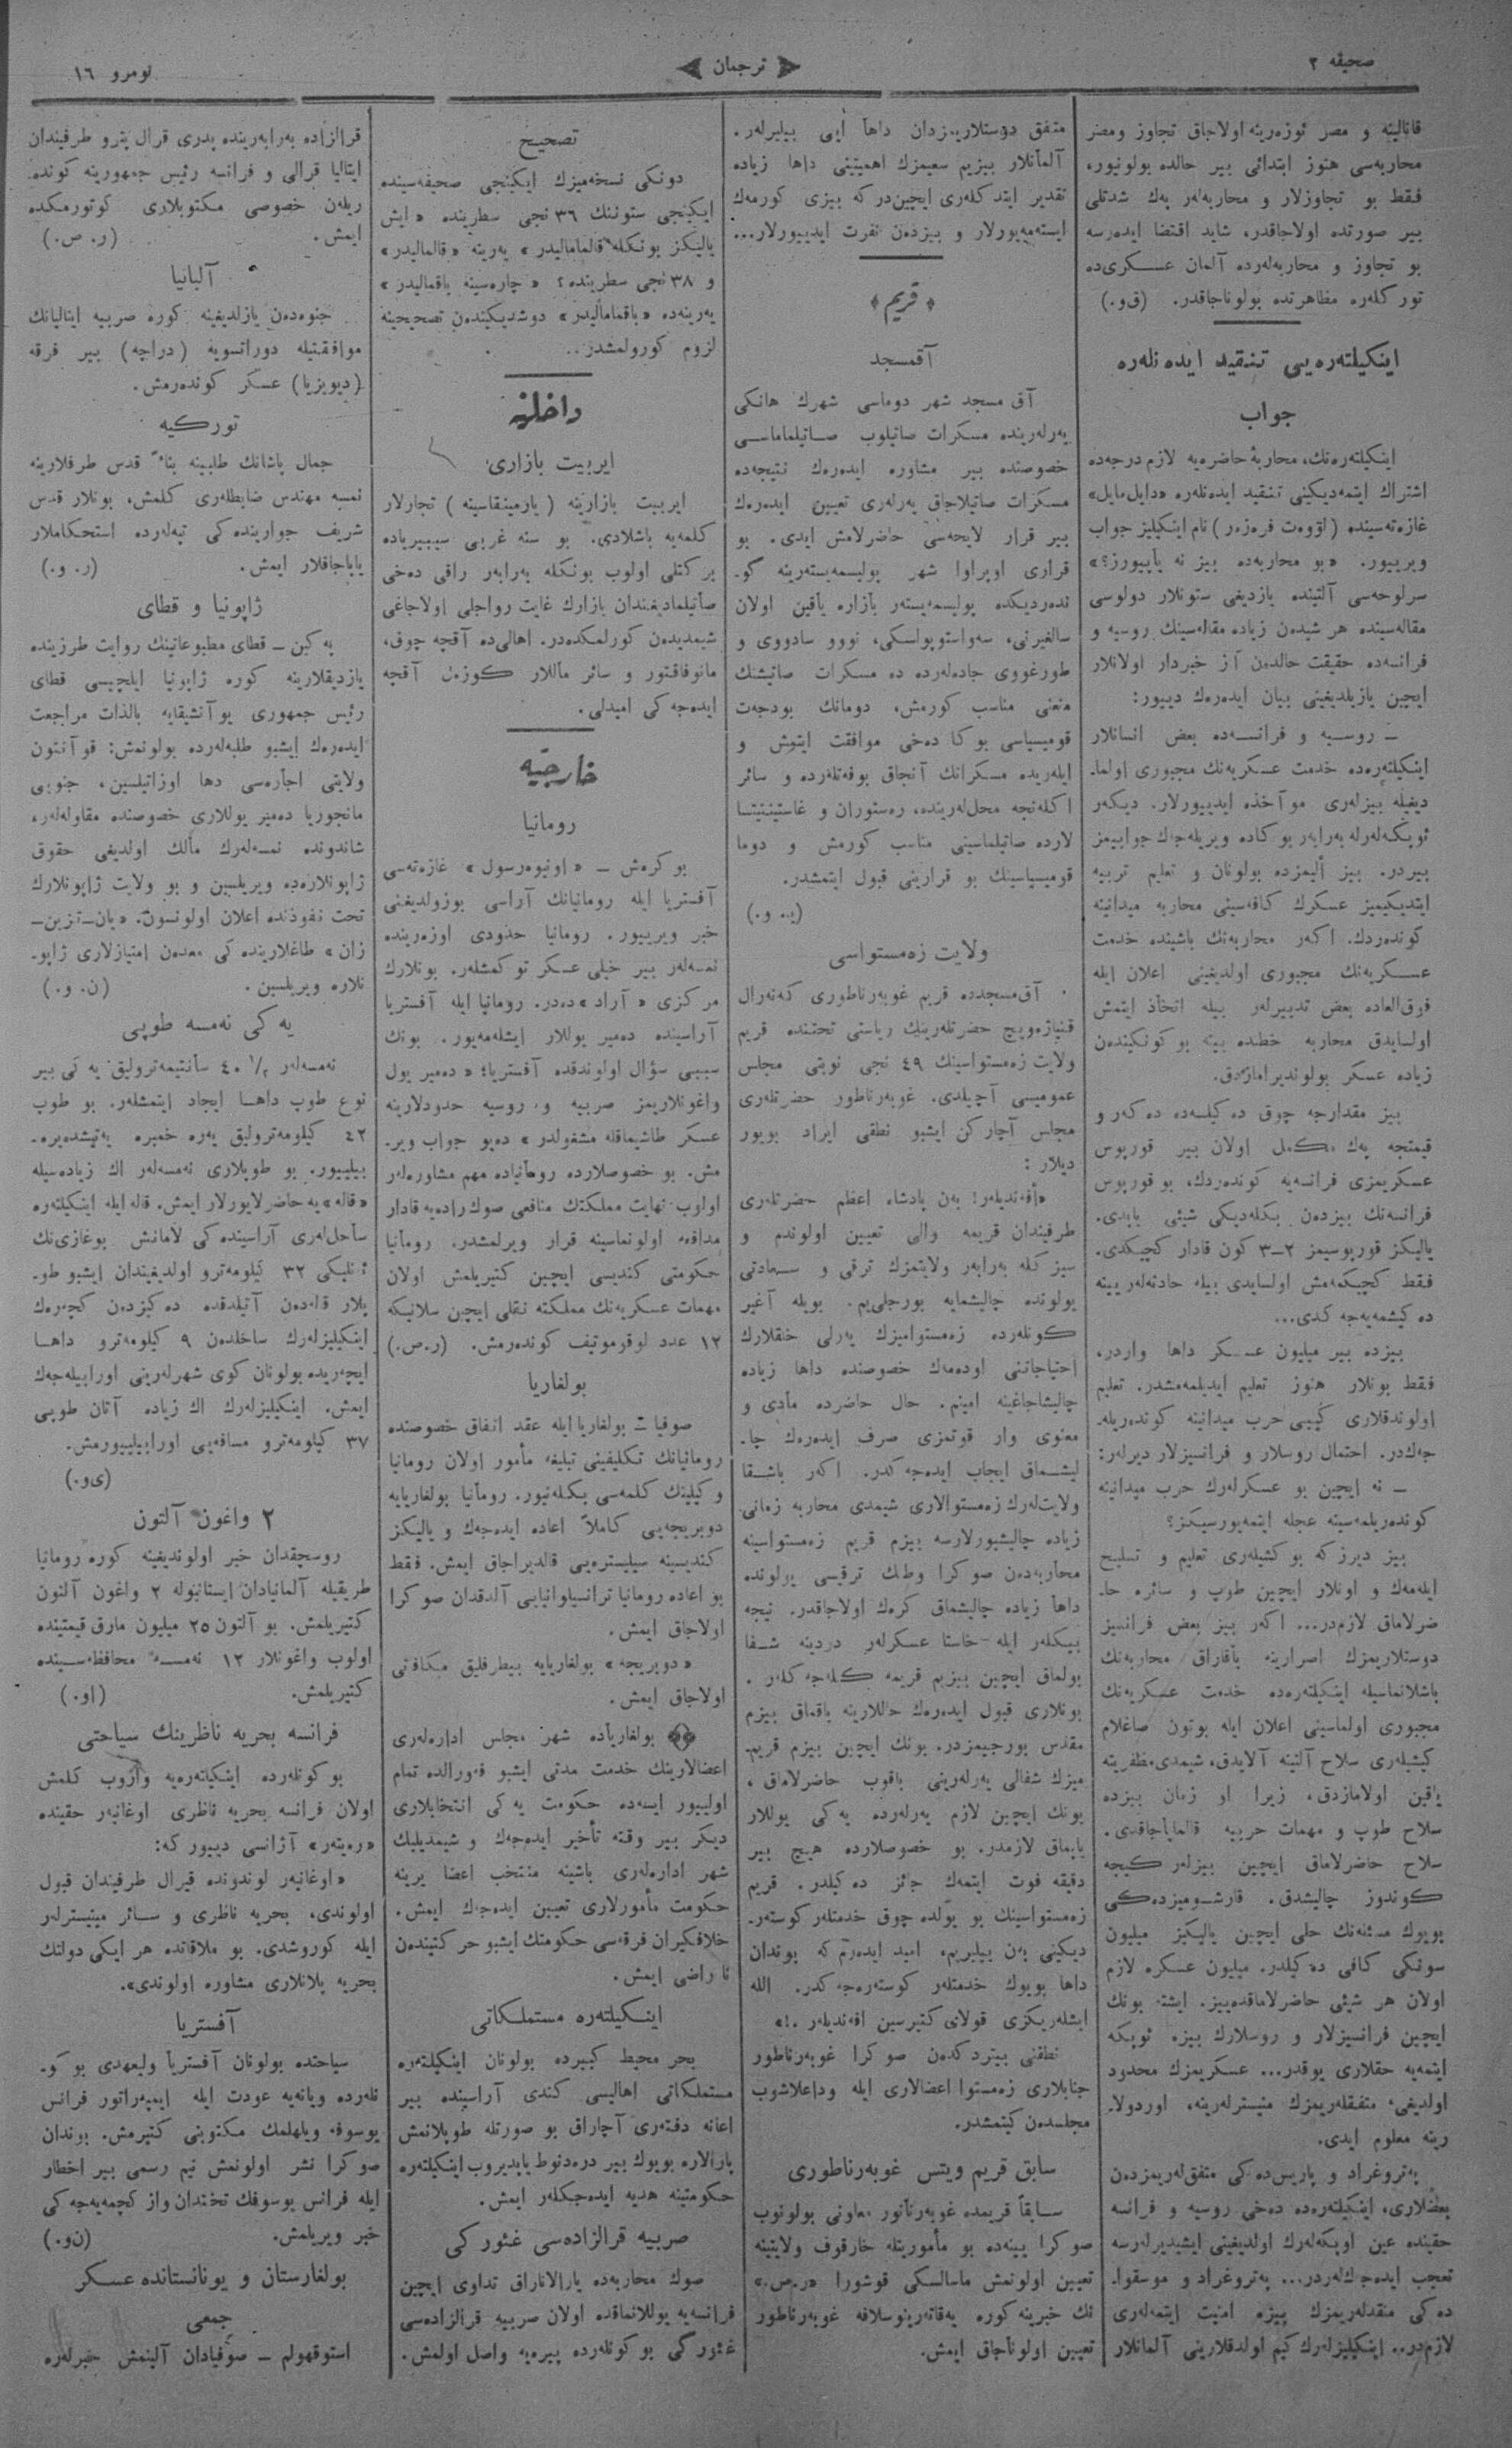 صحیفه ٢
ترجمان
نومرو ١٦
قانالینه و مصر ئوزەرینه اولاجاق تجاوز ومصر
محاربه‌سی هنوز ابتدائی بیر حالده بولونیور،
فقط بو تجاوزلار و محاربه‌لەر پەك شدتلی
بیر صورتده اولاجاقدر، شاید اقتضا ایدەرسه
بو تجاوز و محاربه‌لەرده آلمان عسکری‌ده
تورکلەره مظاهرتده بولوناجاقدر. (ق‌و.)
اینکیلتەرەیی تنقید ایدەنلەره
جواب
اینکیلتەرەنك، محاربۀ حاضرەیه لازم درجه‌ده
اشتراك ایتمەدیکینی تنقید ایدەنلەره «دایل‌مایل»
غازەتەسینده (لوۋەت فرەزەر) نام اینکیلیز جواب
ویرییور. «بو محاربه‌ده بیز نه یاپییورز؟»
سرلوحه‌سی آلتینده یازدیغی ستونلار دولوسی
مقاله‌سینده هر شیدن زیاده مقاله‌سینك روسیه و
فرانسه‌ده حقیقت حالدن آز خبردار اولانلار
ایچین یازیلدیغینی بیان ایدەرەك دییور:
ــ روسیه و فرانسه‌ده بعض انسانلار
اینکیلتەرەده خدمت عسکریه‌نك مجبوری اولما-
دیغیله بیزلەری موآخذه ایدییورلار. دیکەر
ئوپکەلەرله بەرابەر بوکاده ویریلەجك جوابیمز
بیردر. بیز ألیمزده بولونان و تعلیم تربیه
ایتدیکیمیز عسکرك کافه‌سینی محاربه میدانینه
کوندەردك. اکەر محاربه‌نك باشینده خدمت
عسکریه‌نك مجبوری اولدیغینی اعلان ایله
فوق‌العاده بعض تدبیرلەر بیله اتخاذ ایتمش
اولسایدق محاربه خطنده بینه بوکونکیندن
زیاده عسکر بولوندیرامازدق.
بیز مقدارجه چوق دەکیلسه‌ده دەکەر و
قیمتجه پەك مکمل اولان بیر قورپوس
عسکریمزی فرانسه‌یه کوندەردك، بو قورپوس
فرانسه‌نك بیزدەن بکلەدیکی شیئی یاپدی.
یالیکز قورپوسیمز ٢ــ٣ کون قادار کچیکدی.
فقط کچیکمەمش اولسایدی بیله حادثه‌لەر یینه
دەکیشمەیەجەکدی...
بیزده بیر میلیون عسکر داها واردر،
فقط بونلار هنوز تعلیم ایدیلمەمشدر. تعلیم
اولوندقلاری کیبی حرب میدانینه کوندەریله-
جەك‌در. احتمال روسلار و فرانسیزلار دیرلەر:
ــ نه ایچین بو عسکرلەرك حرب میدانینه
کوندەریلمەسینه عجله ایتمەیورسیکز؟
بیز دیرزکه بو کشیلەری تعلیم و تسلیح
ایلەمەك و اونلار ایچین طوپ و سائره حا-
ضرلاماق لازم‌در... اکەر بیز بعض فرانسیز
دوستلاریمزك اصرارینه باقاراق محاربه‌نك
باشلانماسیله اینکیلتەرەده خدمت عسکریه‌نك
مجبوری اولماسینی اعلان ایله بوتون صاغلام
کیشیلەری سلاح آلتینه آلایدق، شیمدی مظفریته
یاقین اولامازدق، زیرا او زمان بیزده
سلاح طوپ و مهمات حربیه قالمایاجاقدی.
سلاح حاضرلاماق ایچین بیزلەر کیجه
کوندوز چالیشدق. قارشومیزده‌کی
بویوك مسئله‌نك حلی ایچین یالیکز میلیون
سونکی کافی دەکیلدر. میلیون عسکره لازم
اولان هر شیئی حاضرلاماقدەییز. ایشته بونك
ایچین فرانسیزلار و روسلارك بیزه ئوپکه
ایتمه‌یه حقلاری یوقدر... عسکریمزك محدود
اولدیغی، متفقلەریمزك منیسترلەرینه، اوردولا-
رینه معلوم ایدی.
پەتروغراد و پاریس‌ده‌کی متفق‌لەریمزدن
بعضلاری، اینکیلتەرەده دەخی روسیه و فرانسه
حقینده عین اوپکەلەرك اولدیغینی ایشیدیرلەرسه
تعجب ایدەجك‌لەردر... پەتروغراد و موسقوا-
ده‌کی منقدلەریمزك بیزه امنیت ایتمەلەری
لازم‌در.. اینکیلیزلەرك کیم اولدقلارینی آلمانلار
متفق دوستلاریمزدان داها أیی بیلیرلەر.
آلمانلار بیزیم سعیمزك اهمیتینی داها زیاده
تقدیر ایتدکلەری ایچین‌در که بیزی کورمەك
ایستەمەیورلار و بیزدەن نفرت ایدییورلار...
«قریم»
آقمسجد
آق مسجد شهر دوماسی شهرك هانکی
یەرلەرینده مسکرات صاتیلوب صاتیلماماسی
خصوصنده بیر مشاوره ایدەرەك نتیجه‌ده
مسکرات صاتیلاجاق یەرلەری تعیین ایدەرەك
بیر قرار لایحه‌سی حاضرلامش ایدی. بو
قراری اوپراوا شهر پولیسمەیستەرینه گو-
ندەردیکده پولیسمەیستەر بازاره یاقین اولان
سالغیرنی، سەواستوپولسکی، نووو سادووی و
طورغووی جاده‌لەرده ده مسکرات صاتیشنك
منعنی مناسب کورمش، دومانك بودجەت
قومیسیاسی بوکا دەخی موافقت ایتمش و
ایلەریده مسکراتك آنجاق بوفەتلەرده و سائر
اکلەنجه محل‌لەرینده، رەستوران و غاستیننیتسا
لارده صاتیلماسینی مناسب کورمش و دوما
قومیسیاسینك بو قرارینی قبول ایتمشدر.
(یـ. و.)
ولایت زەمستواسی
آق‌مسجدده قریم غوبەرناطوری کەنەرال
قنیازەویچ حضرتلەرینك ریاستی تحتنده قریم
ولایت زەمستواسینك ٤٩ نجی نوبتی مجلس
عمومیسی آچیلدی. غوبەرناطور حضرتلەری
مجلس آچارکن ایشبو نطقی ایراد بویور
دیلار:
«أفەندیلەر! بەن پادشاه اعظم حضرتلەری
طرفیندان قریمه والی تعیین اولوندم و
سیزکله بەرابەر ولایتمزك ترقی و سعادتی
یولونده چالیشمایه بورجلی‌یم. بویله آغیر
کونلەرده زەمستوامیزك یەرلی خلقلارك
احتیاجاتنی اودەمەك خصوصنده داها زیاده
چالیشاجاغینه امینم. حال حاضرده مادی و
معنوی وار قوتمزی صرف ایدەرەك چا-
لیشماق ایجاب ایدەجەکدر. اکەر باشقا
ولایت‌لەرك زەمستوالاری شیمدی محاربه زمانی
زیاده چالیشیورلارسه بیزم قریم زەمستواسینه
محاربه‌دن صوکرا وطنك ترقیسی یولونده
داها زیاده چالیشماق کرەك اولاجاقدر. نیجه
بیکلەر ایله خاستا عسکرلەر دردینه شفا
بولماق ایچین بیزیم قریمه کلەجەکلەر.
بونلاری قبول ایدەرەك حاللارینه باقماق بیزم
مقدس بورجیمزدر. بونك ایچین بیزم قریم-
میزك شفالی یەرلەرینی یاقوب حاضرلاماق،
بونك ایچین لازم یەرلەرده یەکی یوللار
یاپماق لازمدر. بو خصوصلارده هیچ بیر
دقیقه فوت ایتمەك جائز دەکیلدر. قریم
زەمستواسینك بو یولده چوق خدمتلەر کوستەر-
دیکینی بەن بیلیریم، امید ایدەرم که بوندان
داها بویوك خدمتلەر کوستەرەجەکدر. الله
ایشلەریکزی قولای کتیرسین افەندیلەر.!»
نطقنی بیتردکدەن صوکرا غوبەرناطور
جنابلاری زەمستوا اعضالاری ایله وداعلاشوب
مجلسدەن کیتمشدر.
سابق قریم ویتس غوبەرناطوری
سابقاً قریمده غوبەرناتور معاونی بولونوب
صوکرا یینه‌ده بو مأموریتله خارقوف ولایتینه
تعیین اولونمش ماسالسکی قوشورا «ر.ص.»
نك خبرینه کوره یەقاتەرینوسلافه غوبەرناطور
تعیین اولوناجاق ایمش.
تصحیح
دونکی نسخه‌میزك ایکینجی صحیفه‌سینده
ایکینجی ستوننك ٣٦ نجی سطرینده «ایش
یالیکز بونکله قالمامالیدر» یەرینه «قالمالیدر»
و ٣٨ نجی سطرینده؛ «چارەسینه باقمالیدر»
یەرینه‌ده «باقمامالیدر» دوشدیکیندەن تصحیحینه
لزوم کورولمشدر..
داخلیه
ایربیت بازاری
ایربیت بازارینه (یارمینقاسینه) تجارلار
کلمه‌یه باشلادی. بو سنه غربی سیبیریاده
برکتلی اولوب بونکله بەرابەر راقی دەخی
صاتیلمادیغندان بازارك غایت رواجلی اولاجاغی
شیمدیدن کورلمکده‌در. اهالی‌ده آقچه چوق،
مانوفاقتور و سائر ماللار کوزەل آقچه
ایدەجەکی امیدلی.
خارجیّه
رومانیا
بوکرەش ــ «اونیوەرسول» غازەتەسی
آفستریا ایله رومانیانك آراسی بوزولدیغنی
خبر ویرییور. رومانیا حدودی اوزەرینده
نمسه‌لەر بیر خیلی عسکر توکمشلەر. بونلارك
مرکزی «آراد» ده‌در. رومانیا ایله آفستریا
آراسینده دەمیر یوللار ایشلەمەیور. بونك
سببی سؤال اولوندقده آفستریا؛ «دەمیر یول
واغونلاریمز صربیه و روسیه حدودلارینه
عسکر طاشیماقله مشغولدر» دەیو جواب ویر-
مش. بو خصوصلارده رومانیاده مهم مشاوره‌لەر
اولوب نهایت مملکتك منافعی صوك راده‌یه قادار
مدافعه اولونماسینه قرار ویرلمشدر. رومانیا
حکومتی کندیسی ایچین کتیریلمش اولان
مهمات عسکریه‌نك مملکته نقلی ایچین سلانیکه
١٢ عدد لوقوموتیف کوندەرمش. (ر.ص.)
بولغاریا
صوفیا ــ بولغاریا ایله عقد اتفاق خصوصنده
رومانیانك تکلیفینی تبلیغه مأمور اولان رومانیا
وکیلینك کلمەسی بکلەنیور. رومانیا بولغاریایه
دوبریجه‌یی کاملاً اعاده ایدەجەك و یالیکز
کندیسینه سیلیسترەیی قالدیراجاق ایمش. فقط
بو اعاده رومانیا ترانسیلوانیایی آلدقدان صوکرا
اولاجاق ایمش.
«دوبریجه» بولغاریایه بیطرفلیق مکافاتی
اولاجاق ایمش.
بولغاریاده شهر مجلس اداره‌لەری
اعضالارینك خدمت مدتی ایشبو فەورالده تمام
اولییور ایسه‌ده حکومت یەکی انتخابلاری
دیکر بیر وقته تأخیر ایدەجەك و شیمدیلیك
شهر اداره‌لەری باشینه منتخب اعضا یرینه
حکومت مأمورلاری تعیین ایدەجەك ایمش.
خلافکیران فرقه‌سی حکومتك ایشبو حرکتیندەن
نا راضی ایمش.
اینکیلتەره مستملکاتی
بحر محیط کبیرده بولونان اینکیلتەره
مستملکاتی اهالیسی کندی آراسینده بیر
اعانه دفتەری آچاراق بو صورتله طوپلانمش
پارالاره بویوك بیر درەدنوط یاپدیروب اینکیلتەره
حکومتینه هدیه ایدەجکلەر ایمش.
صربیه قرالزاده‌سی غئورکی
صوك محاربه‌ده یارالاناراق تداوی ایچین
فرانسه‌یه یوللانماقده اولان صربیه قرالزاده‌سی
غئورگی بو کونلەرده پیرەیه واصل اولمش.
قرالزاده بەرابەرینده پدری قرال پترو طرفیندان
ایتالیا قرالی و فرانسه رئیس جمهورینه کونده
ریلەن خصوصی مکتوبلاری کوتورمکده
ایمش. (ر. ص.)
آلبانیا
جنوەدەن یازلدیغینه کوره صربیه ایتالیانك
موافقتیله دوراتسویه (دراچه) بیر فرقه
(دیویزیا) عسکر کوندەرمش.
تورکیه
جمال پاشانك طلبینه بناءً قدس طرفلارینه
نمسه مهندس ضابطلەری کلمش، بونلار قدس
شریف جوارینده‌کی تپه‌لەرده استحکاملار
یاپاجاقلار ایمش. (ر. و.)
ژاپونیا و قطای
پەکین ــ قطای مطبوعاتینك روایت طرزینده
یازدیقلارینه کوره ژاپونیا ایلچیسی قطای
رئیس جمهوری یوآنشیقایه بالذات مراجعت
ایدەرەك ایشبو طلبه‌لەرده بولونمش: قوآنتون
ولایتی اجاره‌سی دها اوزاتیلسین، جنوبی
مانجوریا دەمیر یوللاری خصوصنده مقاوله‌لەر،
شاندونده نمسه‌لەرك مالك اولدیغی حقوق
ژاپونلاره‌ده ویریلسین و بو ولایت ژاپونلارك
تحت نفوذنده اعلان اولونسون. «یان-تزین-
زان» طاغلارینده‌کی معدەن امتیازلاری ژاپو-
نلاره ویریلسین. (ن. و.)
یەکی نەمسه طوپی
نەمسه‌لەر ١/٢ ٤٠ سانتیمەترولیق یەکی بیر
نوع طوپ داها ایجاد ایتمشلەر. بو طوپ
٤٢ کیلومەترولیق یەره خمبره یەتیشدیره-
بیلییور. بو طوپلاری نەمسه‌لەر اك زیاده‌سیله
«قاله» یه حاضرلایورلار ایمش. قاله ایله اینکیلتەره
ساحل‌لەری آراسینده‌کی لامانش بوغازی‌نك
ئنلیکی ٣٢ کیلومەترو اولدیغیندان ایشبو طو-
پلار قاله‌دن آتیلدقده دەکزدن کچەرەك
اینکیلیزلەرك ساحلدەن ٩ کیلومەترو داها
ایچەریده بولونان کوی شهرلەرینی اورابیلەجەك
ایمش. اینکیلیزلەرك اك زیاده آتان طوپی
٣٧ کیلومەترو مسافه‌یی اورابیلییورمش.
(ی‌و.)
٢ واغون آلتون
روسچقدان خبر اولوندیغینه کوره رومانیا
طریقیله آلمانیادان ایستانبوله ٢ واغون آلتون
کتیریلمش. بو آلتون ٢٥ میلیون مارق قیمتینده
اولوب واغونلار ١٢ نەمسه محافظه‌سینده
کتیریلمش. (او.)
فرانسه بحریه ناظرینك سیاحتی
بو کونلەرده اینکیلتەرەیه واروب کلمش
اولان فرانسه بحریه ناظری اوغانیەر حقینده
«رەیتەر» آژانسی دییور که:
«اوغانیەر لوندونده قیرال طرفیندان قبول
اولوندی، بحریه ناظری و سائر مینیسترلەر
ایله کوروشدی. بو ملاقاتده هر ایکی دولتك
بحریه پلانلاری مشاوره اولوندی».
آفستریا
سیاحتده بولونان آفستریا ولیعهدی بو کو-
نلەرده ویانه‌یه عودت ایله ایمپەراتور فرانس
یوسوفه ویلهلمك مکتوبنی کتیرمش. بوندان
صوکرا نشر اولونمش نیم رسمی بیر اخطار
ایله فرانس یوسوفك تختدان واز کچمەیەجەکی
خبر ویریلمش. (ن‌و.)
بولغارستان و یونانستانده عسکر
جمعی
استوقهولم ــ صوفیادان آلینمش خبرلەره